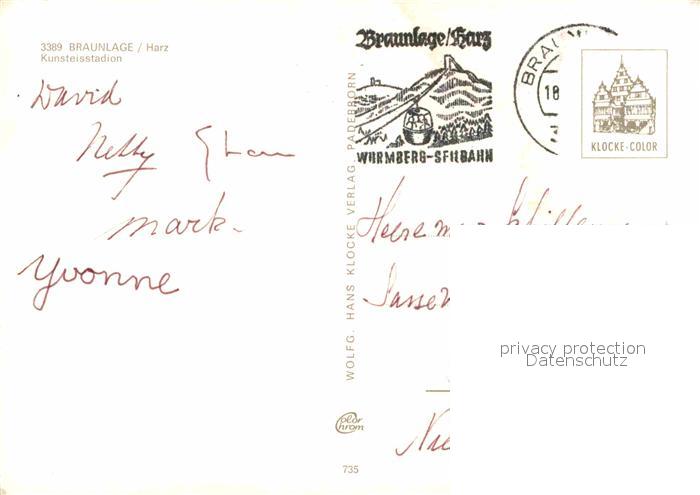 3389 BRAUNLAGE / Harz
Kunsteisstadion
David
Netty
mark.
Yvonne
WOLFG. HANS KLOCKE VERLAG, PADERBORN
Color
Chrom
735
Braunlage/Harz
WURMBERG-SEILBAHN
BRAUN
18
KLOCKE-COLOR
Heere
privacy protection
Datenschutz